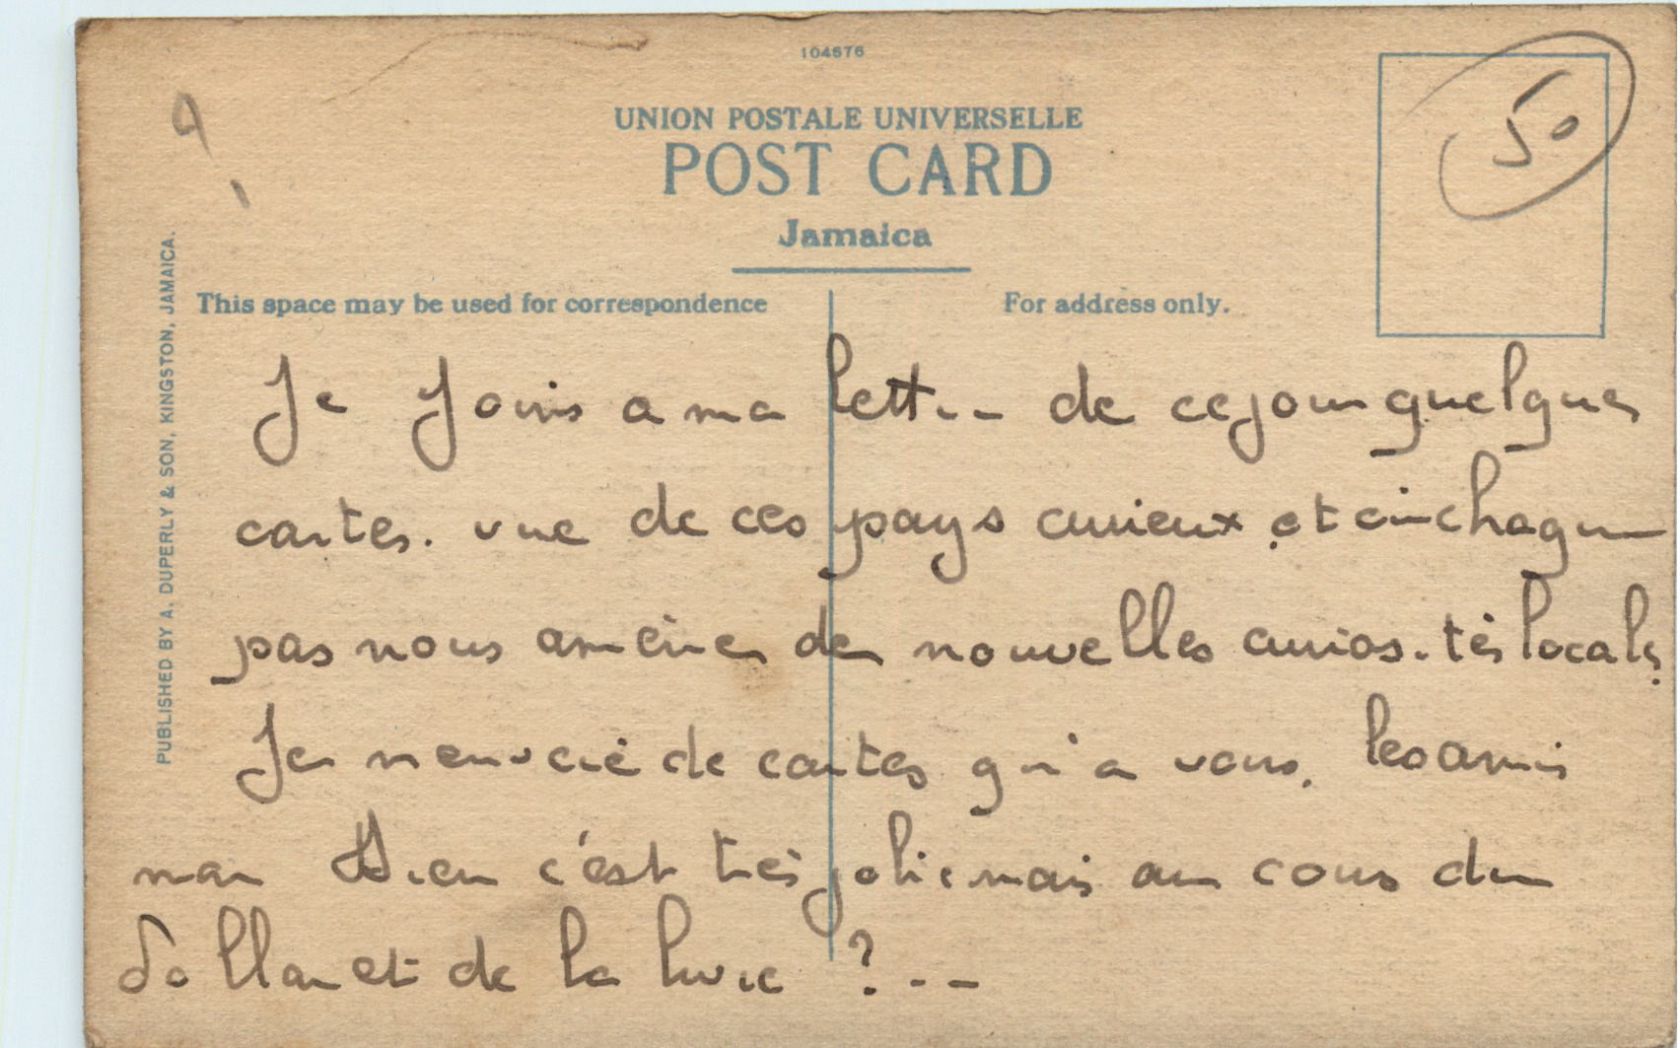 104676
UNION POSTALE UNIVERSELLE
POST CARD
Jamaica
This space may be used for correspondence
For address only.
50
PUBLISHED BY A. DUPERLY & SON, KINGSTON, JAMAICA.
Je joins a ma lettre de ce jour quelques
cartes. vue de ces pays curieux et chaque
pas nous amène de nouvelles curiosités locales
Je n'envoie de cartes qu'a vous. les amis
mon Dieu c'est très jolie mais au cours du
dollar et de la livre ? . _ _